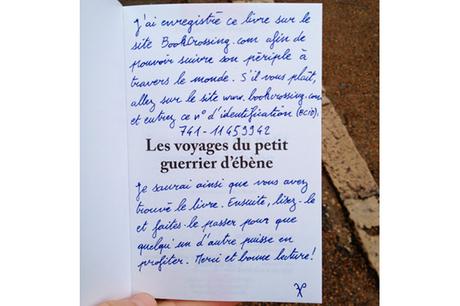 J'ai enregistré ce livre sur le
site BookCrossing.com afin de
pouvoir suivre son périple à
travers le monde. S'il vous plaît,
allez sur le site www.bookcrossing.com
et entrez ce n° d'identification (BCID):
741-11459942
Les voyages du petit
guerrier d'ébène
Je saurai ainsi que vous avez
trouvé le livre. Ensuite, lisez-le
et faites-le passer pour que
quelqu'un d'autre puisse en
profiter. Merci et bonne lecture!